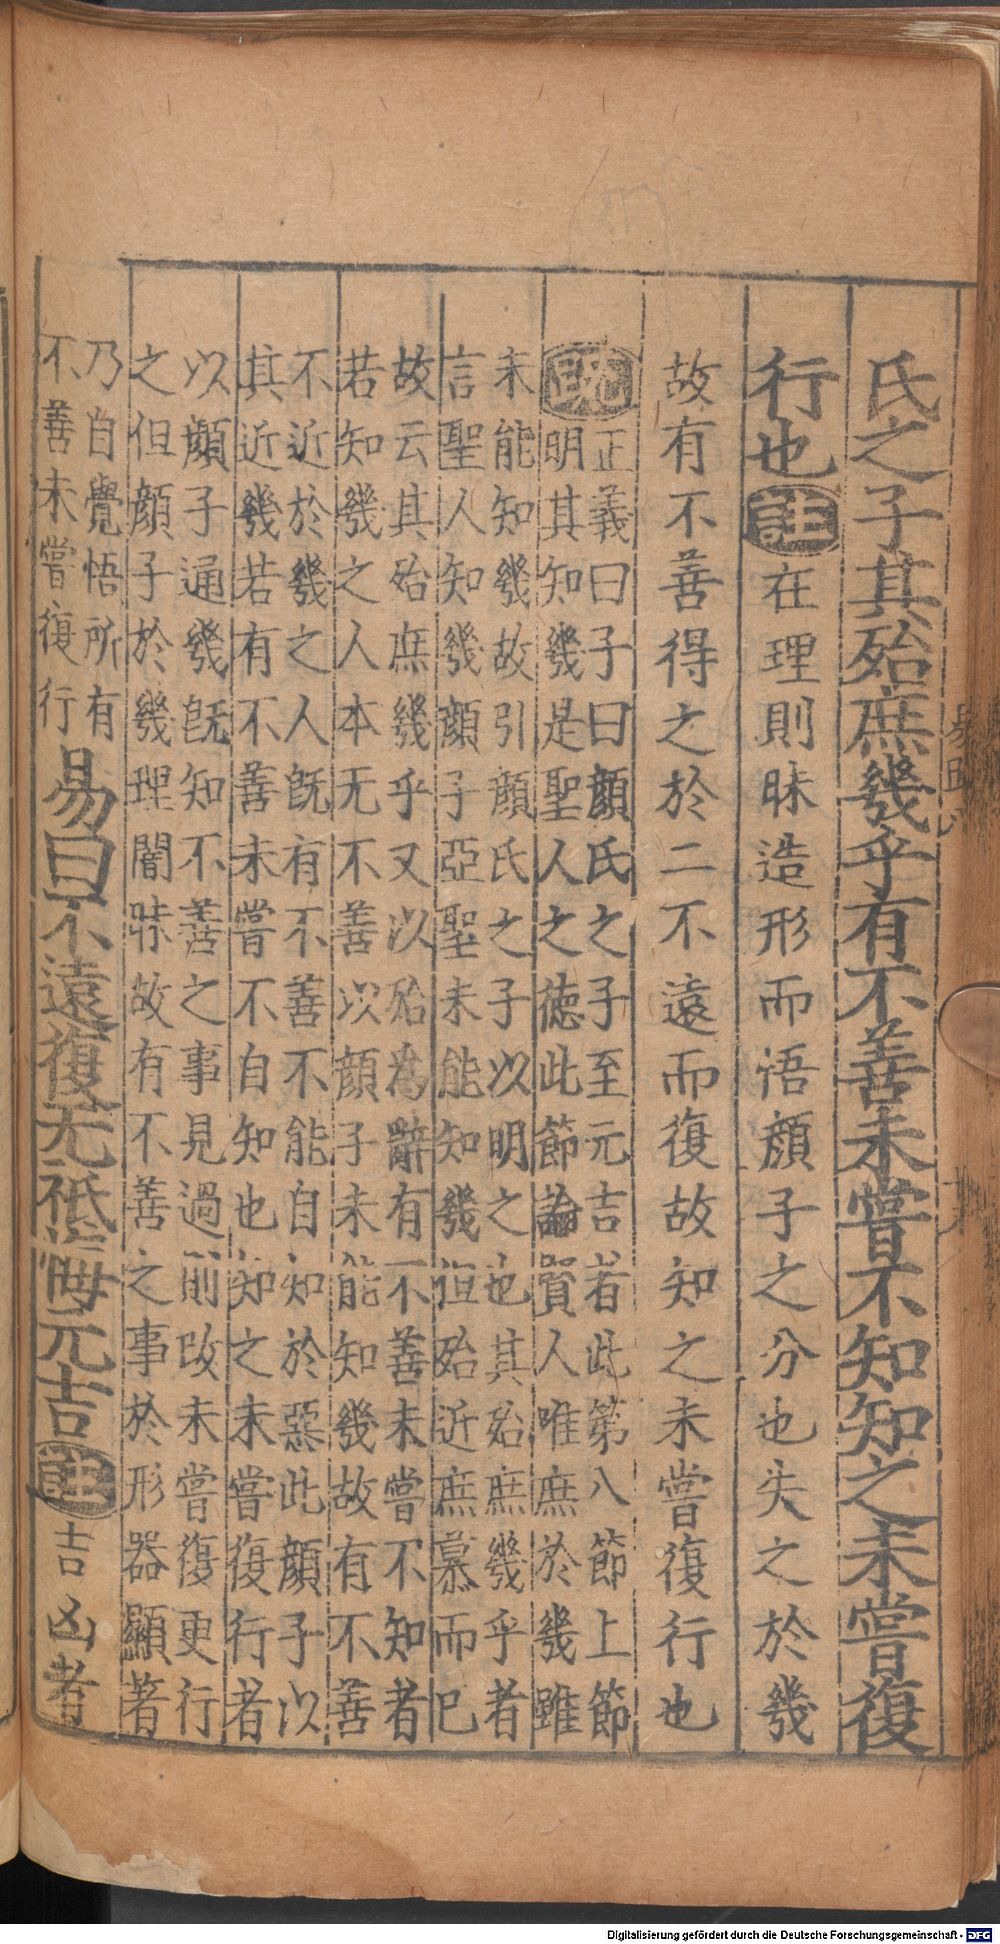 氏之子其殆庶幾乎有不善未嘗不知知之未嘗復
行也註在理則昧造形而悟顏子之分也失之於幾
故有不善得之於二不遠而復故知之未嘗復行也
疏正義曰子曰顏氏之子至元吉者此第八節上節
明其知幾是聖人之德此節論賢人唯庶於幾雖
未能知幾故引顏氏之子以明之也其殆庶幾乎者
言聖人知幾顏子亞聖未能知幾但殆近庶慕而已
故云其殆庶幾乎又以殆為辭有不善未嘗不知者
若知幾之人本无不善以顏子未能知幾故有不善
不近於幾之人既有不善不能自知於惡此顏子以
其近幾若有不善未嘗不自知也知之未嘗復行者
以顏子通幾既知不善之事見過則改未嘗復更行
之但顏子於幾理闇昧故有不善之事於形器顯著
乃自覺悟所有
不善未嘗復行
易曰不遠復无祗悔元吉註吉凶者
Digitalisierung gefördert durch die Deutsche Forschungsgemeinschaft - DFG